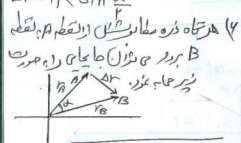 ۶) هرگاه ذره مطابق شکل از نقطه A به نقطه
B برود می توان جابجایی را به صورت
زیر محاسبه نمود.
A Δr B
r_A α r_B